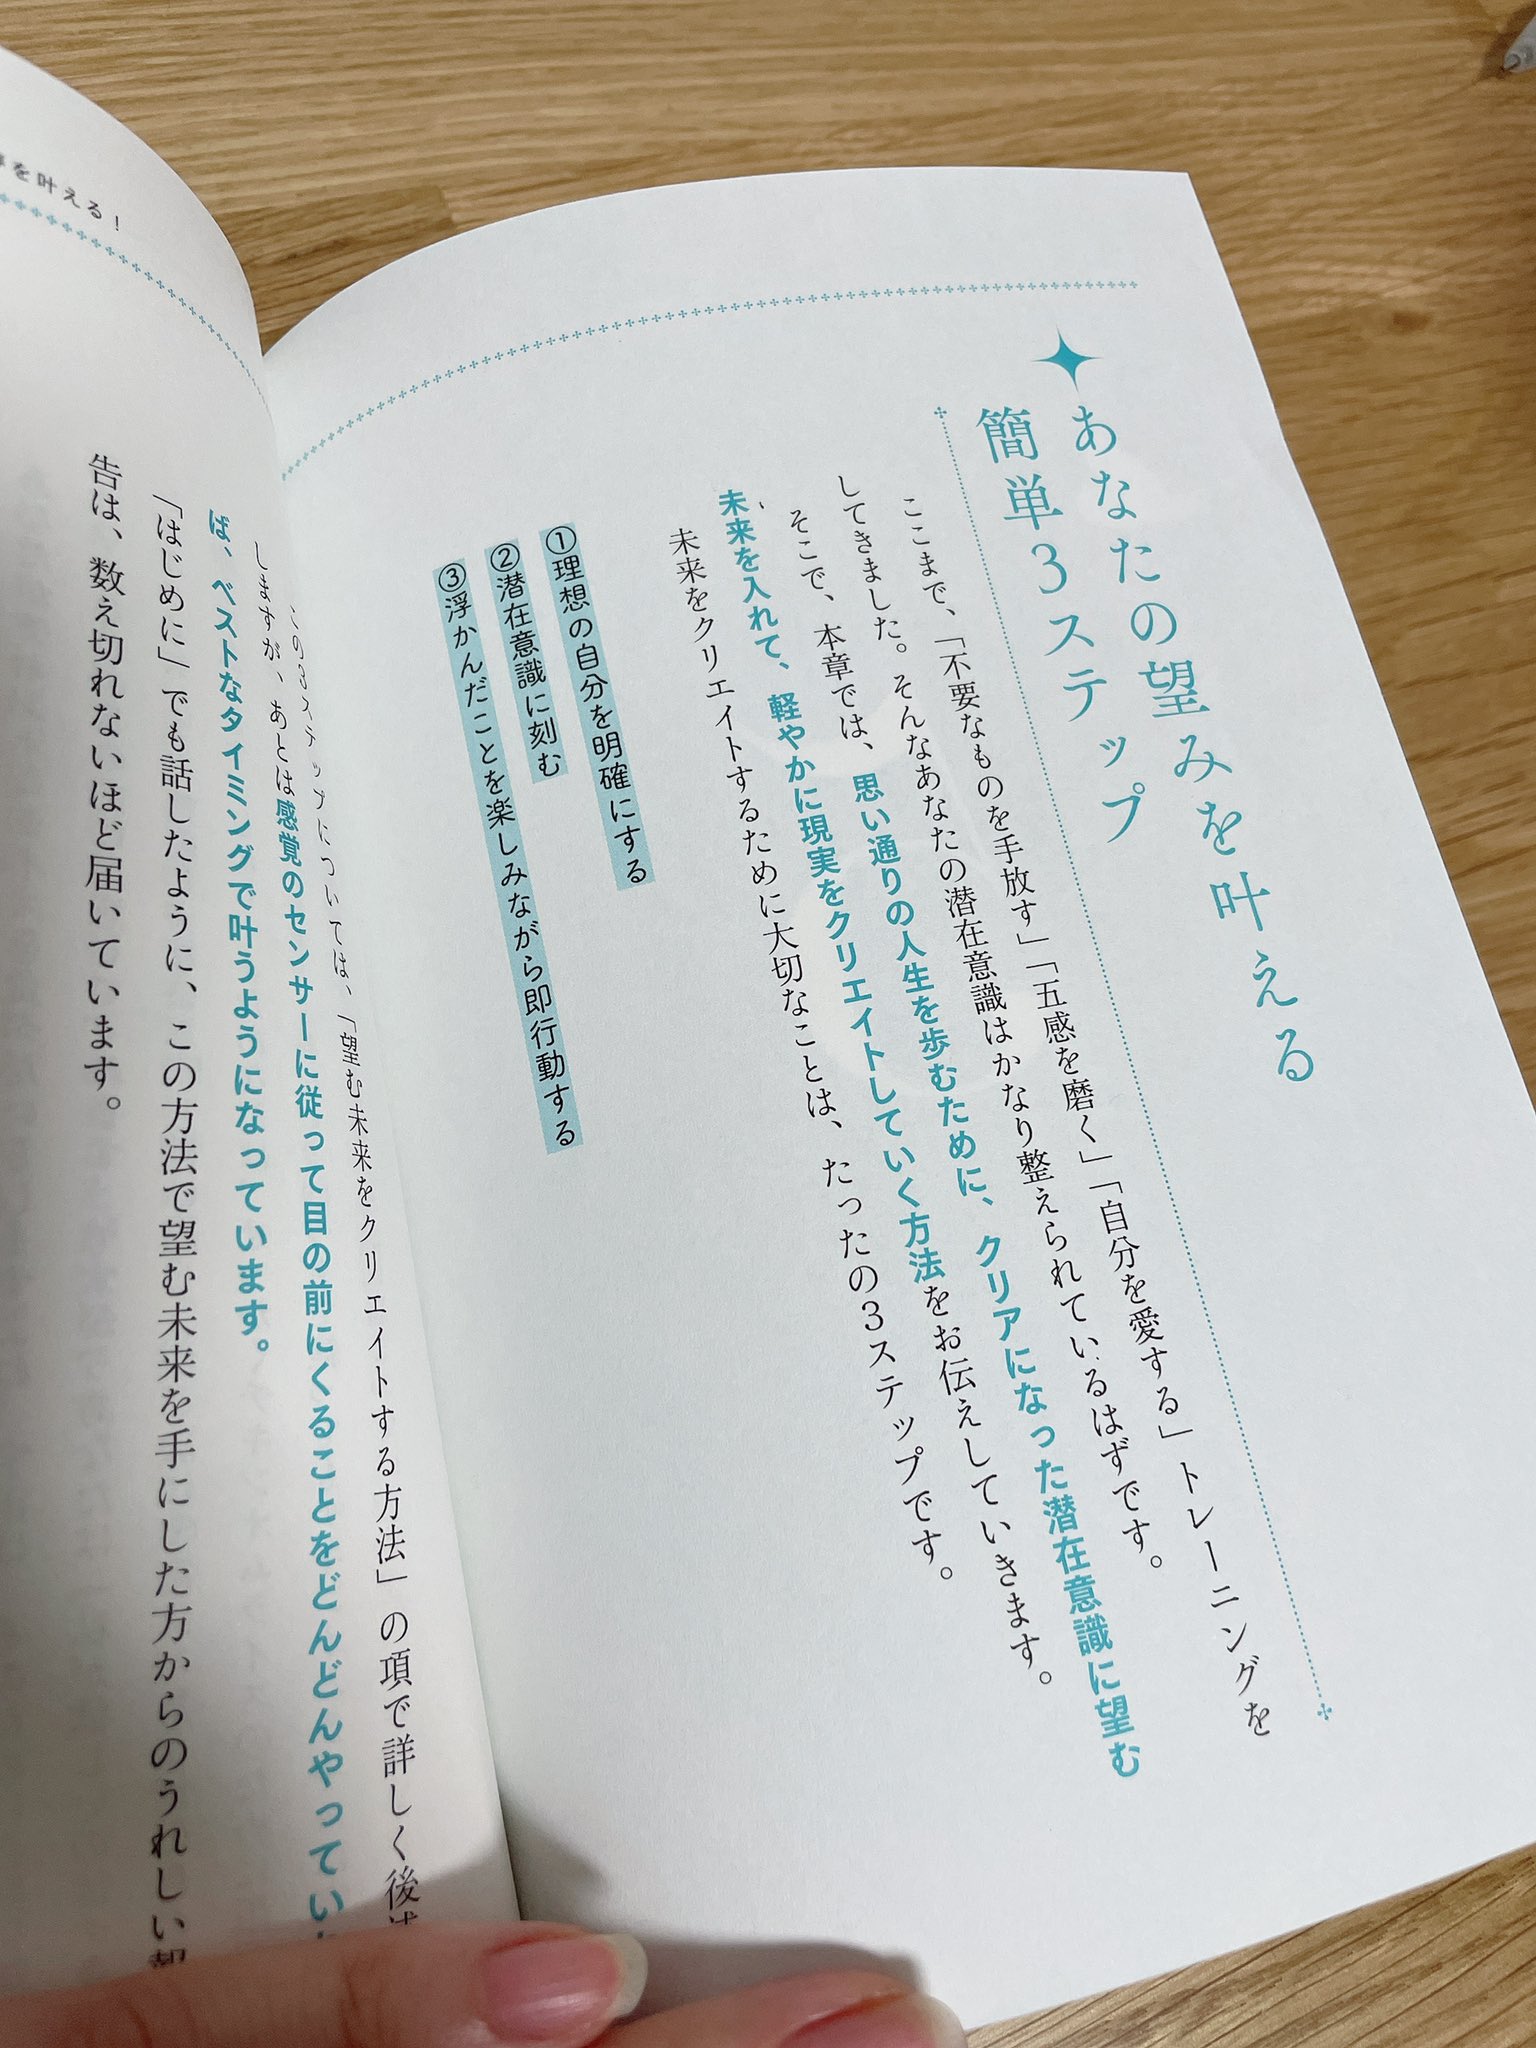 あなたの望みを叶える
簡単3ステップ
ここまで、「不要なものを手放す」「五感を磨く」「自分を愛する」トレーニングを
してきました。そんなあなたの潜在意識はかなり整えられているはずです。
そこで、本章では、思い通りの人生を歩むために、クリアになった潜在意識に望む
未来を入れて、軽やかに現実をクリエイトしていく方法をお伝えしていきます。
未来をクリエイトするために大切なことは、たったの3ステップです。
①理想の自分を明確にする
②潜在意識に刻む
③浮かんだことを楽しみながら即行動する
を叶える！
この3ステップについては、「望む未来をクリエイトする方法」の項で詳しく後述
しますが、あとは感覚のセンサーに従って目の前にくることをどんどんやってい
ば、ベストなタイミングで叶うようになっています。
「はじめに」でも話したように、この方法で望む未来を手にした方からのうれしい報
告は、数え切れないほど届いています。